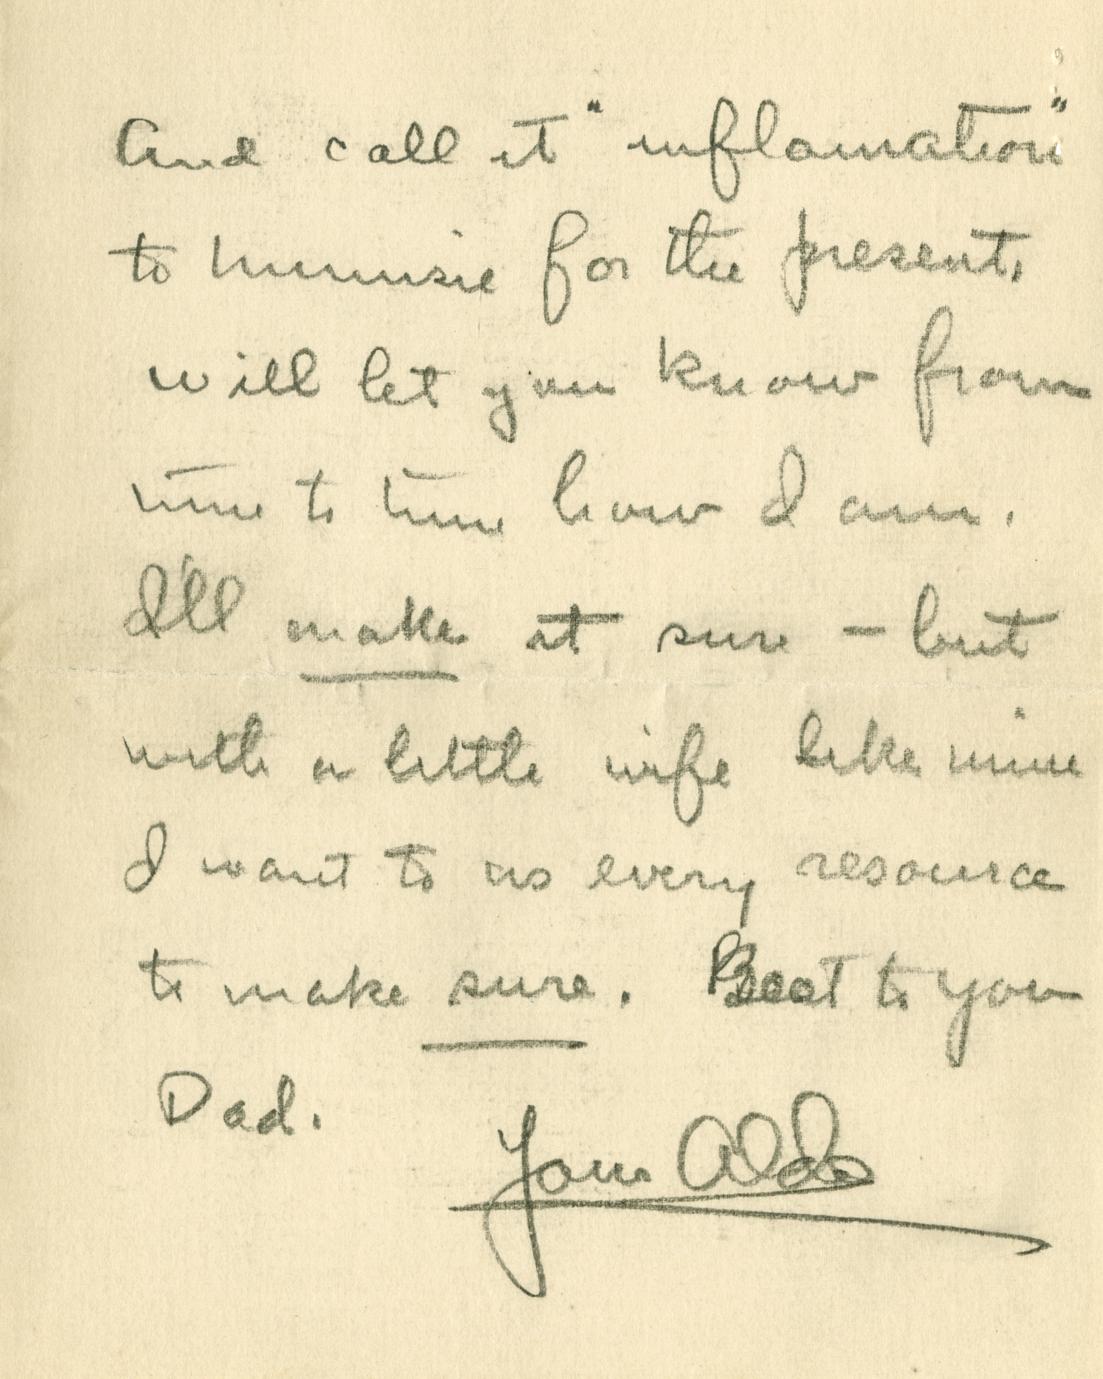 And call it "inflamation"
to minimise for the present.
will let you know from
time to time how I am.
I'll make it sure – but
with a little wife like mine
I want to us every resource
to make sure. Best to you
Dad.
Your Aldo